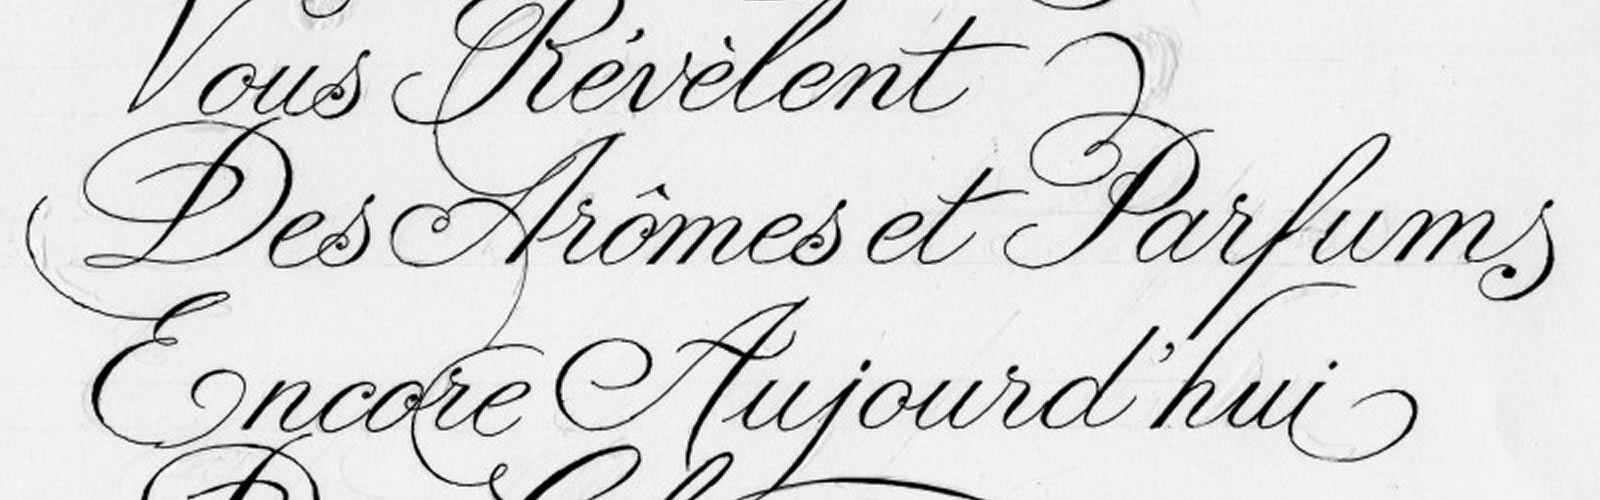 Vous Révèlent
Des Arômes et Parfums
Encore Aujourd'hui